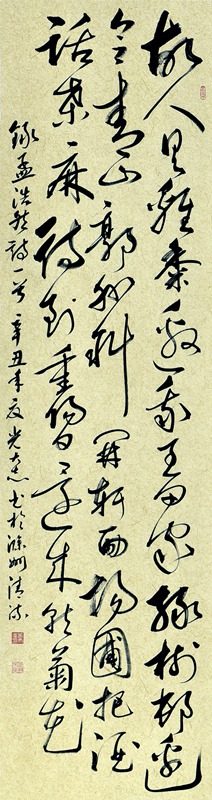 故人具雞黍邀我至田家綠樹邨邊
合青山郭外斜開軒面場圃把酒
話桑麻待到重陽日還來就菊花
錄孟浩然詩一首辛丑年夏光書於滁州清流